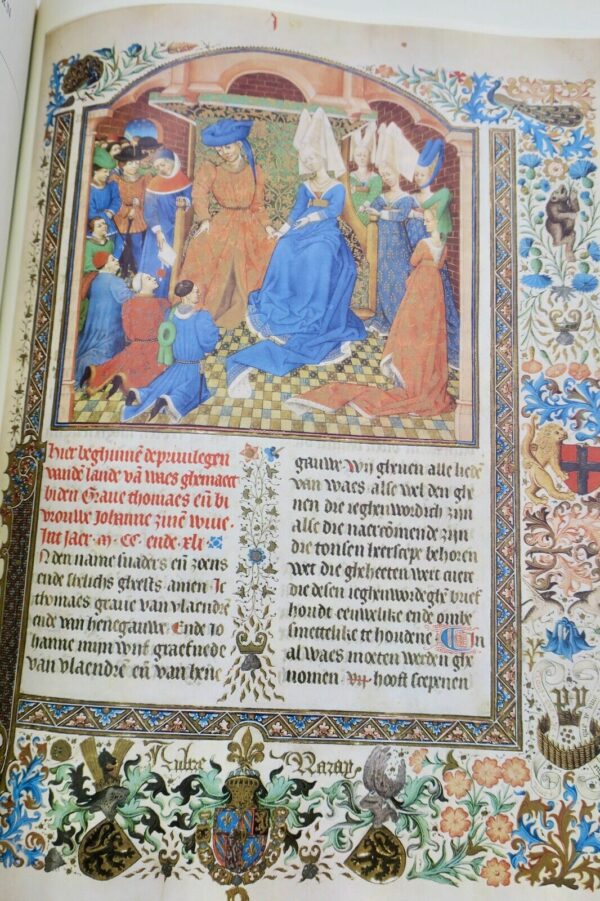 hier beghinnē de priuilegen
vandē lande vā waes ghemaect
biden Graue thomaes eñ bi
vrouwe Johanne zinē wiue.
Int jaer .m. CC. ende .xli.
Inden name svaders eñ zoens
ende shelichs gheests amen. Ic
thomaes graue van vlaendrē
ende van henegauwe. Ende Jo
hanne mijn wijf graefnede
van vlaendrē eñ van hene
gauwe. wij gheuen alle liedē
van waes. alse wel den ghe
nen die ieghenwordich zijn
alse die naercōmende zijn
die tonsen heerscepe behoren
wet die gheheeten wert cuere
die desen ieghenwordeghē brief
houdt eeuwelike ende ombe
smettelike te houdene In
al waes moeten werden ghe
nomen .vij. hooft scepenen